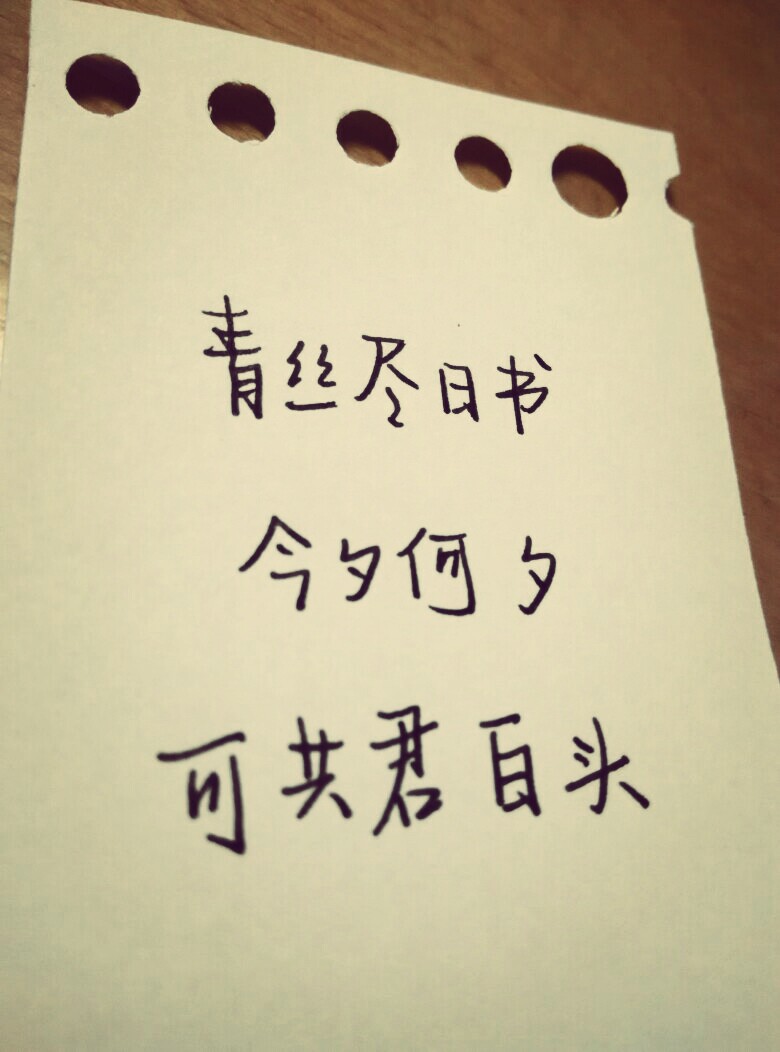 青丝尽日书
今夕何夕
可共君白头